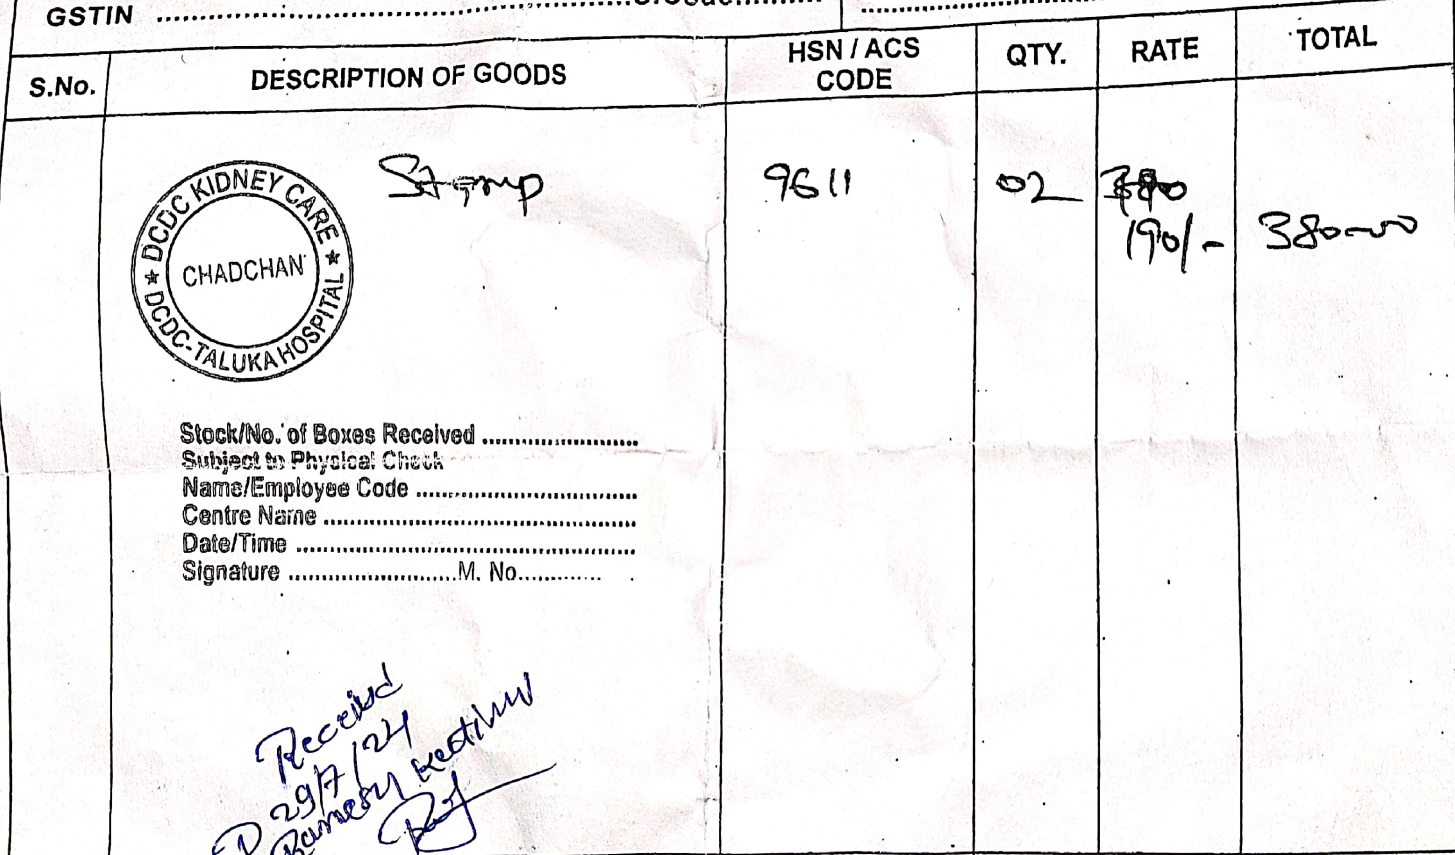 GSTIN
S.No. DESCRIPTION OF GOODS HSN / ACS CODE QTY. RATE TOTAL
Stamp 9611 02
190/- 380-00
★ DCDC KIDNEY CARE ★
CHADCHAN
DCDC-TALUKA HOSPITAL
Stock/No. of Boxes Received ........................
Subject to Physical Check
Name/Employee Code ........................
Centre Name ........................
Date/Time ........................
Signature ........................M. No............
Received
29/7/24